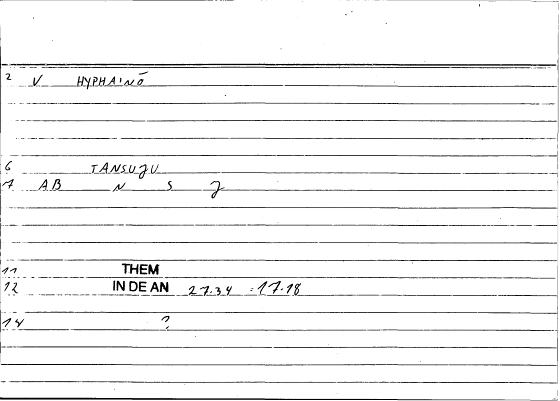 2 V HYPHAINŌ
6 TANSUJU
7 AB N S J
11 THEM
12 IN DE AN 27.34 = 17.18
14 ?